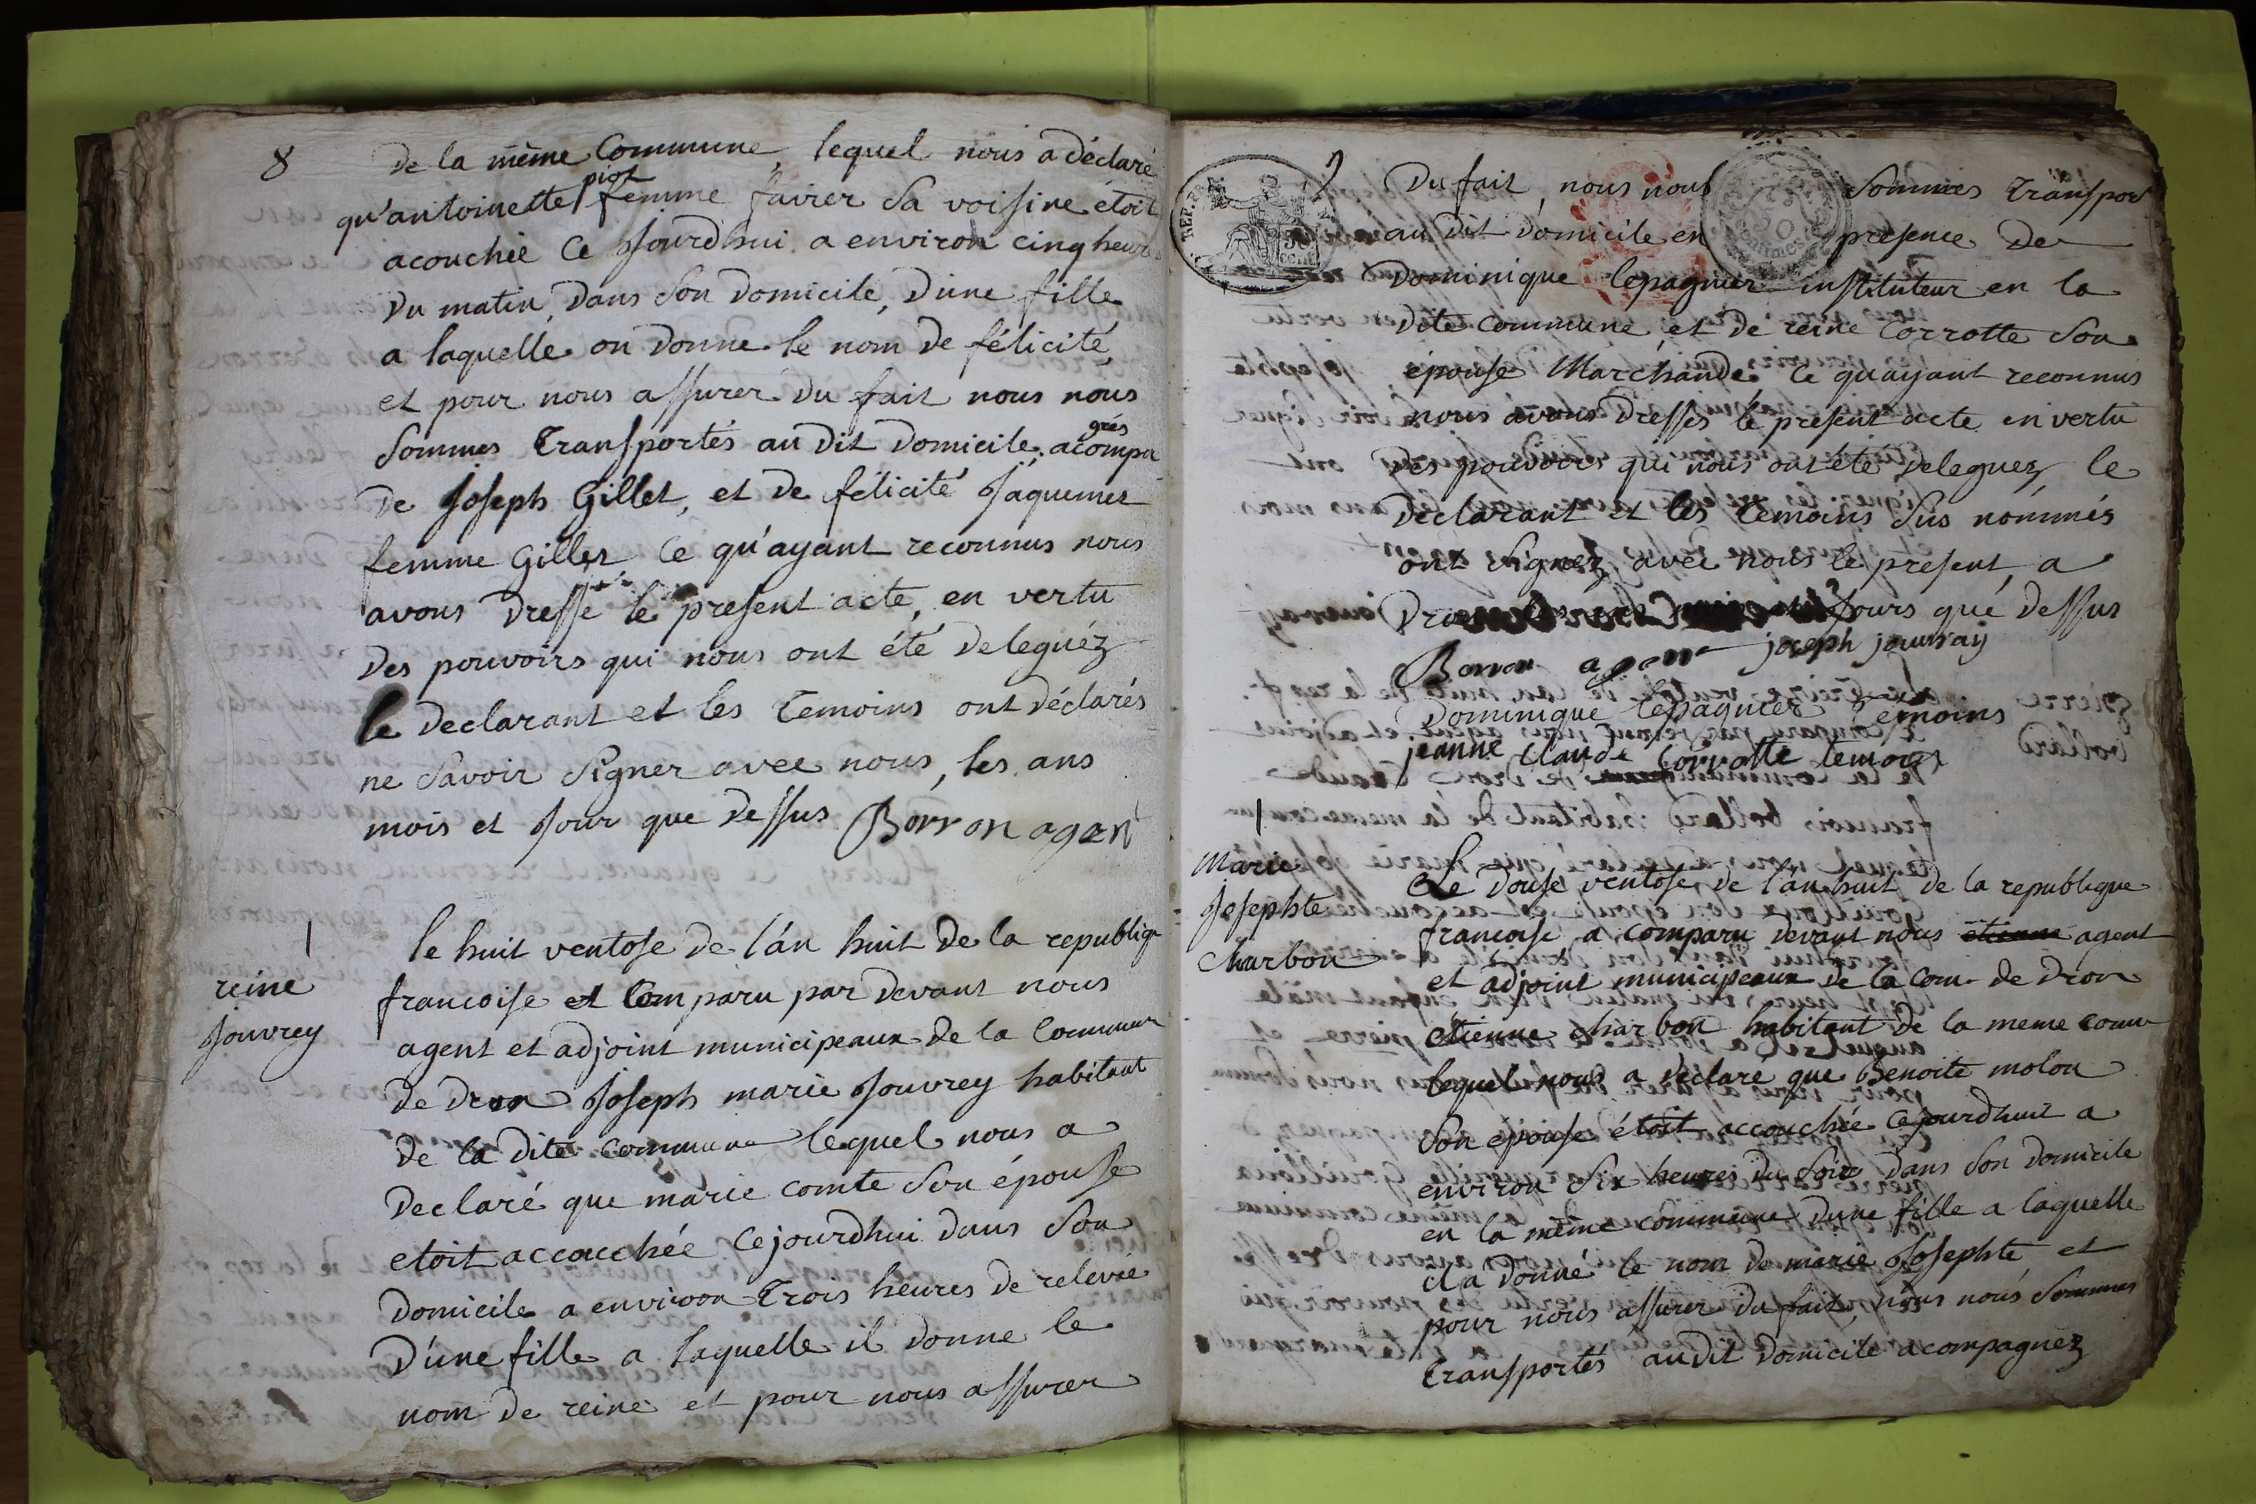 8
de la même Commune, lequel nous a déclaré
qu'antoinette piot femme favier sa voisine étoit
acouchée ce jourdhui a environ cinq heures
du matin, dans son domicile, dune fille
a laquelle on donne le nom de félicité,
et pour nous assurer du fait nous nous
sommes transportés au dit domicile acompagnés
de joseph Gillet, et de félicité jaquemet
femme Gillet ce qu'ayant reconnus nous
avons dressé le present acte, en vertu
des pouvoirs qui nous ont été deleguéz
le declarant et les temoins ont déclarés
ne savoir signer avec nous, les ans
mois et jour que dessus Borron agent
reine
jouvrey
le huit ventose de l'an huit de la republique
francoise et Comparu par devant nous
agent et adjoint municipeaux de la Commune
de dron joseph marie jouvrey habitant
de la dite commune lequel nous a
declaré que marie comte son épouse
etoit accouchée cejourdhui dans son
domicile a environ trois heures de relevée
d'une fille a laquelle il donne le
nom de reine et pour nous assurer
REP. FRA.
50 cent
50 centimes
du fait, nous nous sommes transpor
au dit domicile en presence de
dominique lepagnier instituteur en la
dite commune, et de reine corrotte son
épouse Marchande ce quayant reconnus
nous avons dressés le present acte en vertu
des pouvoirs qui nous ont été deleguez, le
declarant et les temoins sus nommés
ont signez avec nous le present, a
dron jours que dessus
Borron agent joseph jouvray
Dominique lepagnier temoins
jeanne claude Corrotte temoins
marie
josephte
charbon
Le douse ventose de l'an huit de la republique
francoise a comparu devant nous etienne agent
et adjoint municipeaux de la com. de dron
etienne charbon habitant de la meme com
lequel nous a declare que Benoite molon
son epouse étoit accouchée cejourdhui a
environ six heures du soir dans son domicile
en la même commune dune fille a laquelle
il a donné le nom de marie josephte et
pour nous assurer du fait, nous nous sommes
transportés audit domicile acompagnez